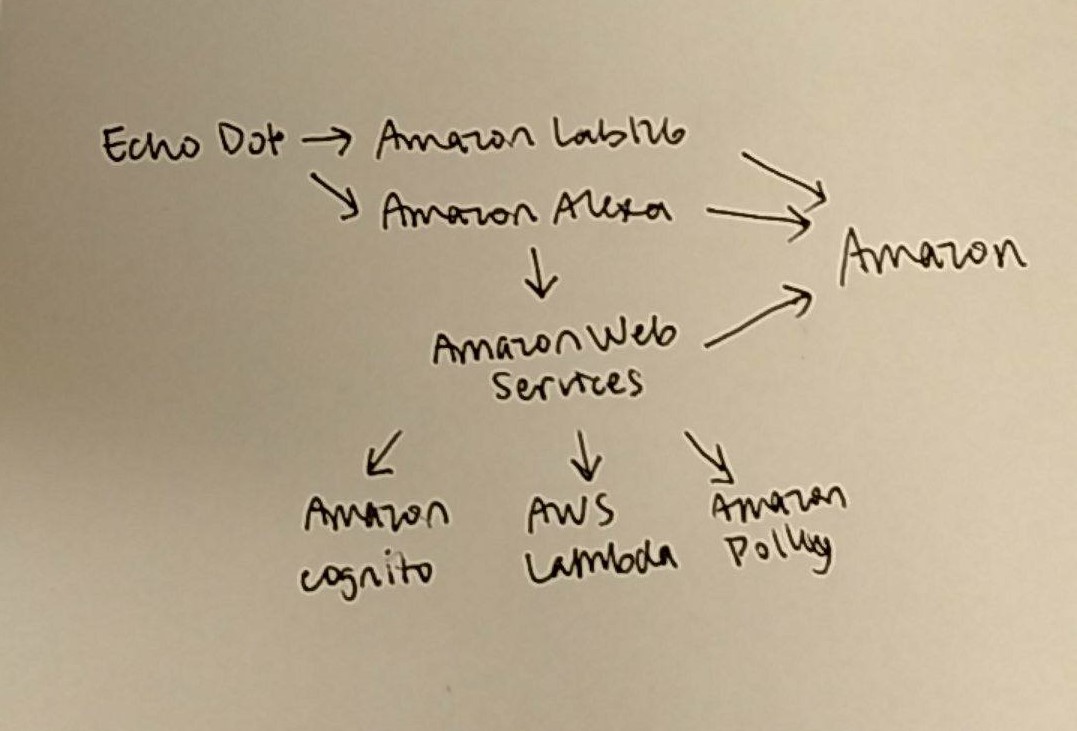 Echo Dot → Amazon Lab126
Amazon Alexa
Amazon
Amazon Web
Services
Amazon
cognito
AWS
Lambda
Amazon
Polly